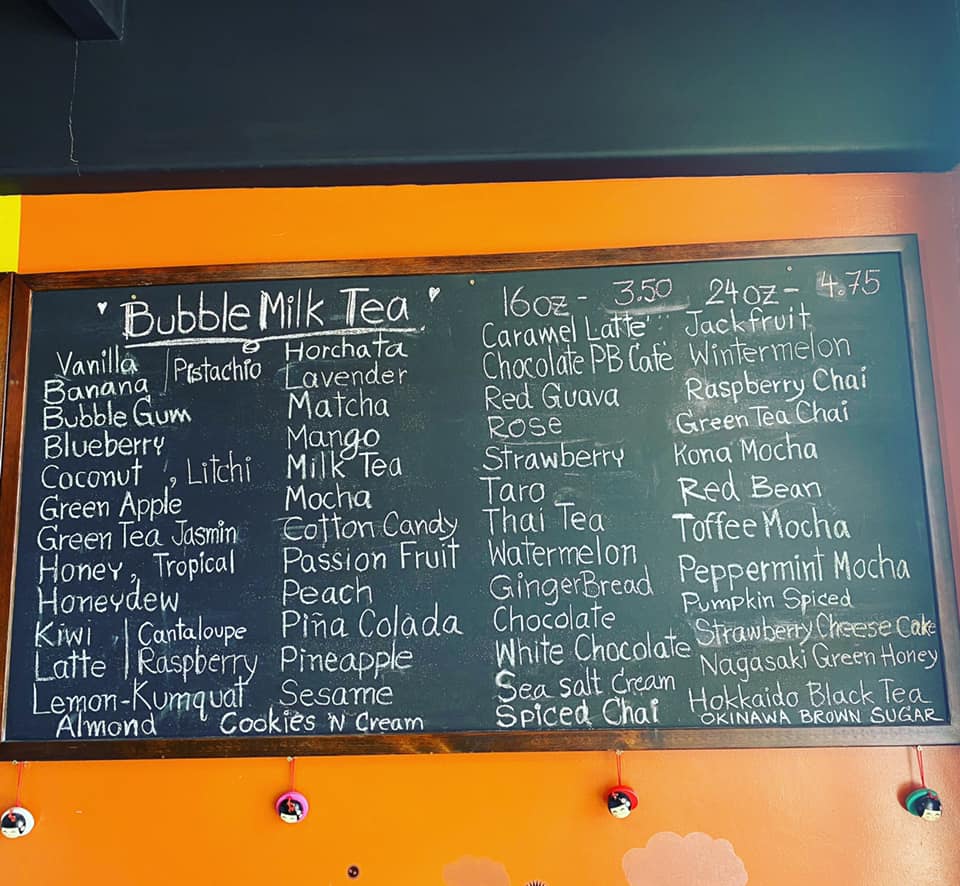 Bubble Milk Tea
16oz - 3.50 24oz - 4.75
Vanilla | Pistachio
Banana
Bubble Gum
Blueberry
Coconut , Litchi
Green Apple
Green Tea Jasmin
Honey, Tropical
Honeydew
Kiwi | Cantaloupe
Latte | Raspberry
Lemon-Kumquat
Almond Cookies 'N Cream
Horchata
Lavender
Matcha
Mango
Milk Tea
Mocha
Cotton Candy
Passion Fruit
Peach
Piña Colada
Pineapple
Sesame
Caramel Latte
Chocolate PB Cafe
Red Guava
Rose
Strawberry
Taro
Thai Tea
Watermelon
GingerBread
Chocolate
White Chocolate
Sea salt Cream
Spiced Chai
Jackfruit
Wintermelon
Raspberry Chai
Green Tea Chai
Kona Mocha
Red Bean
Toffee Mocha
Peppermint Mocha
Pumpkin Spiced
Strawberry Cheese Cake
Nagasaki Green Honey
Hokkaido Black Tea
OKINAWA BROWN SUGAR